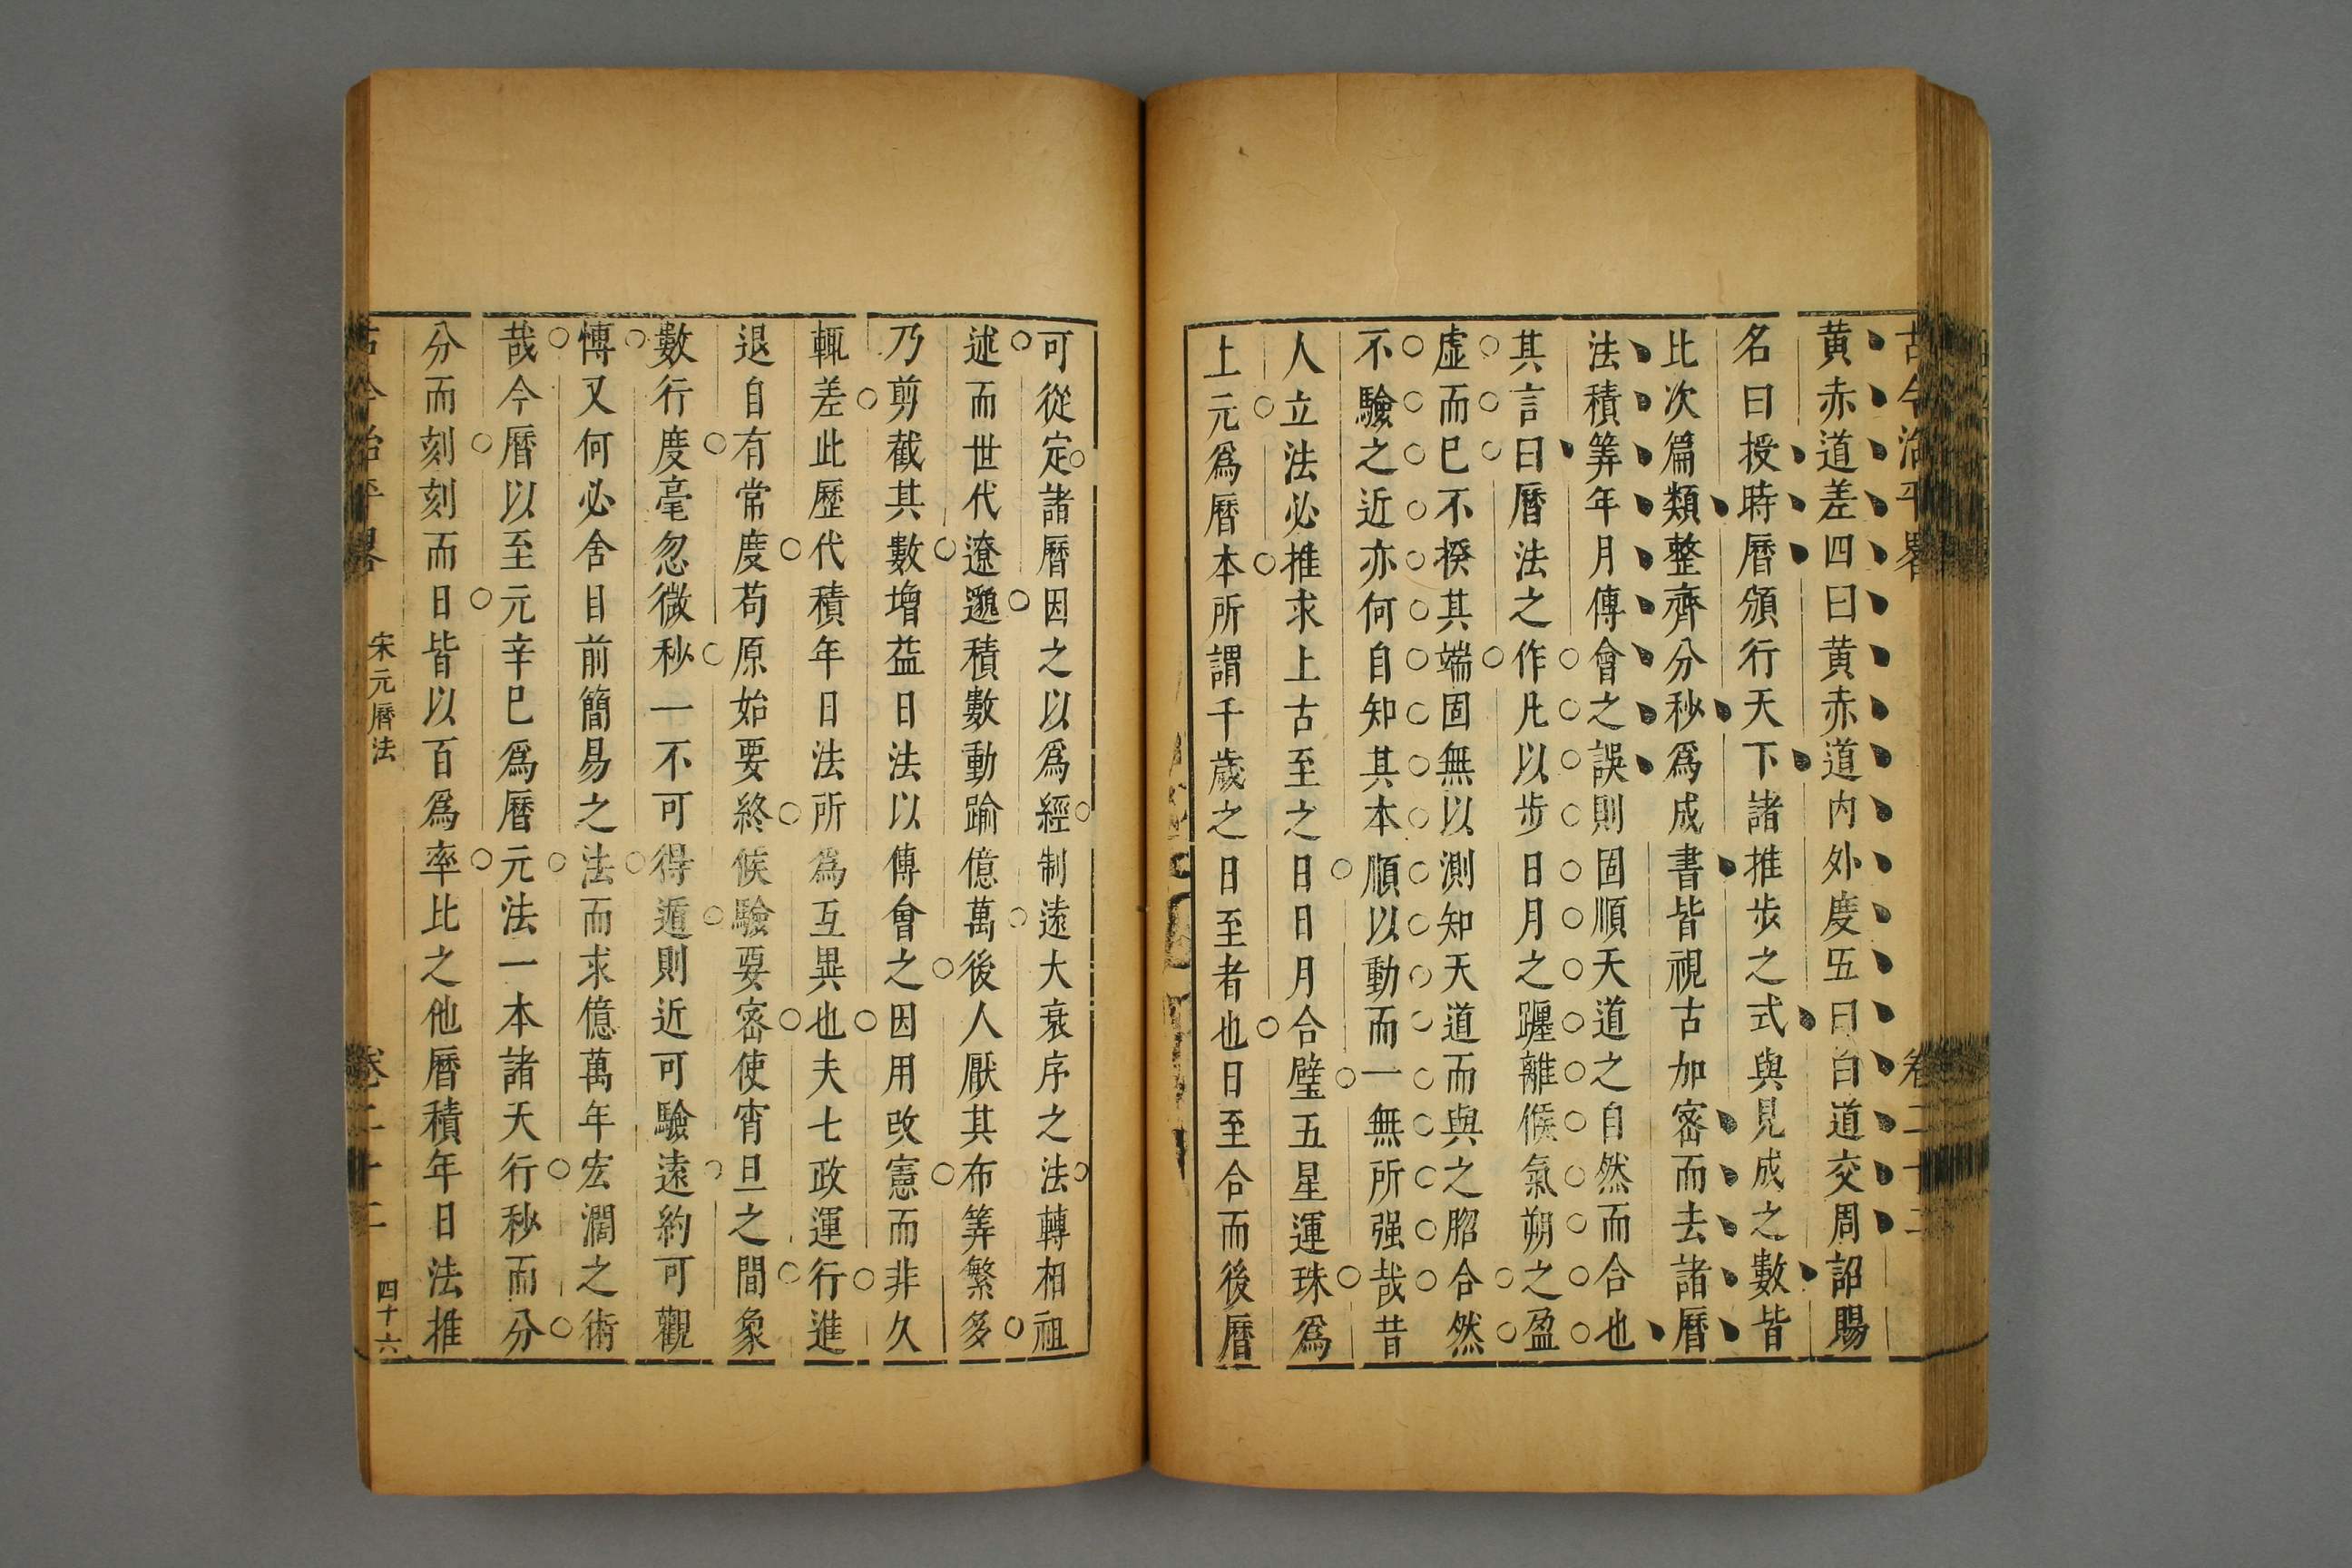 古今治平畧 卷二十二
黄赤道差四曰黄赤道内外度五曰白道交周詔賜
名曰授時曆頒行天下諸推步之式與見成之數皆
比次篇類整齊分秒爲成書皆視古加宻而去諸曆
法積筭年月傅會之誤則固順天道之自然而合也
其言曰曆法之作凡以步日月之躔離候氣朔之盈
虚而巳不揆其端固無以測知天道而與之脗合然
不驗之近亦何自知其本順以動而一無所强哉昔
人立法必推求上古至之日日月合璧五星運珠爲
上元爲曆本所謂千歲之日至者也日至合而後曆
可從定諸曆因之以爲經制遠大衰序之法轉相祖
述而世代遼邈積數動踰億萬後人厭其布筭繁多
乃剪截其數增益日法以傅會之因用改憲而非久
輒差此歷代積年日法所爲互異也夫七政運行進
退自有常度苟原始要終候驗要宻使宵旦之間象
數行度毫忽微秒一不可得遁則近可驗遠約可觀
愽又何必舍目前簡易之法而求億萬年宏濶之術
哉今曆以至元辛巳爲曆元法一本諸天行秒而分
分而刻刻而日皆以百爲率比之他曆積年日法推
古今治平畧 宋元曆法 卷二十二 四十六